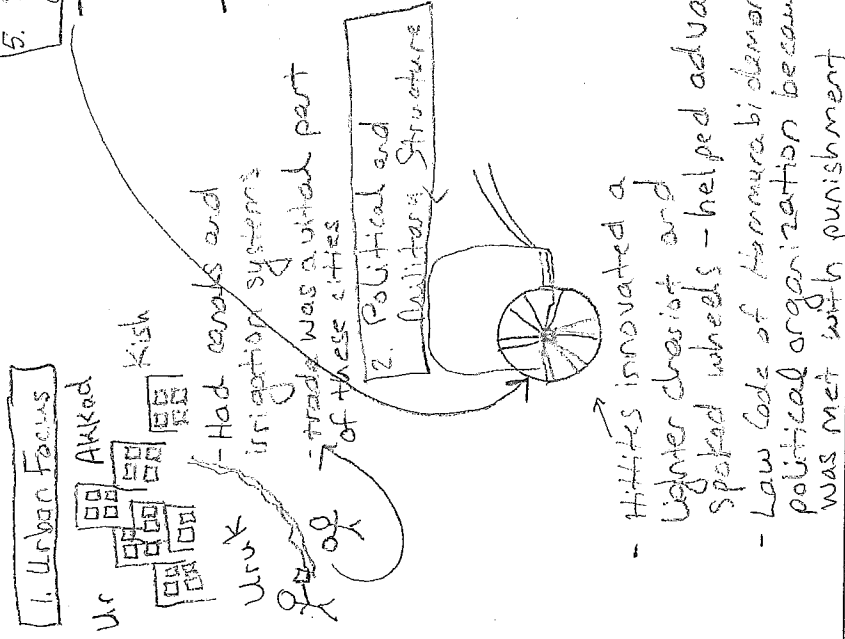 1. Urban Focus
Ur
Akkad
Kish
Uruk
- Had canals and
irrigation systems
- trade was a vital part
of these cities
2. Political and
Military Structure
- Hittites innovated a
lighter chariot and
spoked wheels - helped adva
- Law Code of Hammurabi demon
political organization becau
was met with punishment
5.